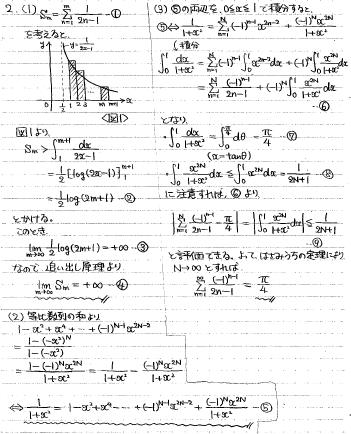 2. (1) S_m = Σ_{n=1}^{m} 1/(2n-1) …①
を考えると、
y↑ y=1/(2x-1)
1/2 1 2 3 m m+1 x
<図1>
図1より
S_m > ∫_1^{m+1} dx/(2x-1)
= 1/2 [log(2x-1)]_1^{m+1}
= 1/2 log(2m+1) …②
とかける。
このとき
lim_{m→∞} 1/2 log(2m+1) = +∞ …③
なので、追い出し原理より
lim_{m→∞} S_m = +∞ …④
(2) 等比数列の和より
1-x²+x⁴+…+(-1)^{N-1}x^{2N-2}
= (1-(-x²)^N)/(1-(-x²))
= (1-(-1)^N x^{2N})/(1+x²) = 1/(1+x²) - (-1)^N x^{2N}/(1+x²)
⇔ 1/(1+x²) = 1-x²+x⁴-…+(-1)^{N-1}x^{2N-2} + (-1)^N x^{2N}/(1+x²) …⑤
(3) ⑤の両辺を、0≤x≤1で積分すると、
⑤⇔ 1/(1+x²) = Σ_{n=1}^{N} (-1)^{n-1} x^{2n-2} + (-1)^N x^{2N}/(1+x²)
↓積分
∫_0^1 dx/(1+x²) = Σ_{n=1}^{N} (-1)^{n-1} ∫_0^1 x^{2n-2} dx + (-1)^N ∫_0^1 x^{2N}/(1+x²) dx
= Σ_{n=1}^{N} (-1)^{n-1}/(2n-1) + (-1)^N ∫_0^1 x^{2N}/(1+x²) dx
…⑥
となり、
・∫_0^1 dx/(1+x²) = ∫_0^{π/4} dθ = π/4 …⑦
(x=tanθ)
・∫_0^1 x^{2N}/(1+x²) dx ≤ ∫_0^1 x^{2N} dx = 1/(2N+1) …⑧
に注意すれば、⑥より
|Σ_{n=1}^{N} (-1)^{n-1}/(2n-1) - π/4| = |∫_0^1 x^{2N}/(1+x²) dx| ≤ 1/(2N+1)
…⑨
と評価できる。よって、はさみうちの定理により
N→∞とすれば
Σ_{n=1}^{∞} (-1)^{n-1}/(2n-1) = π/4